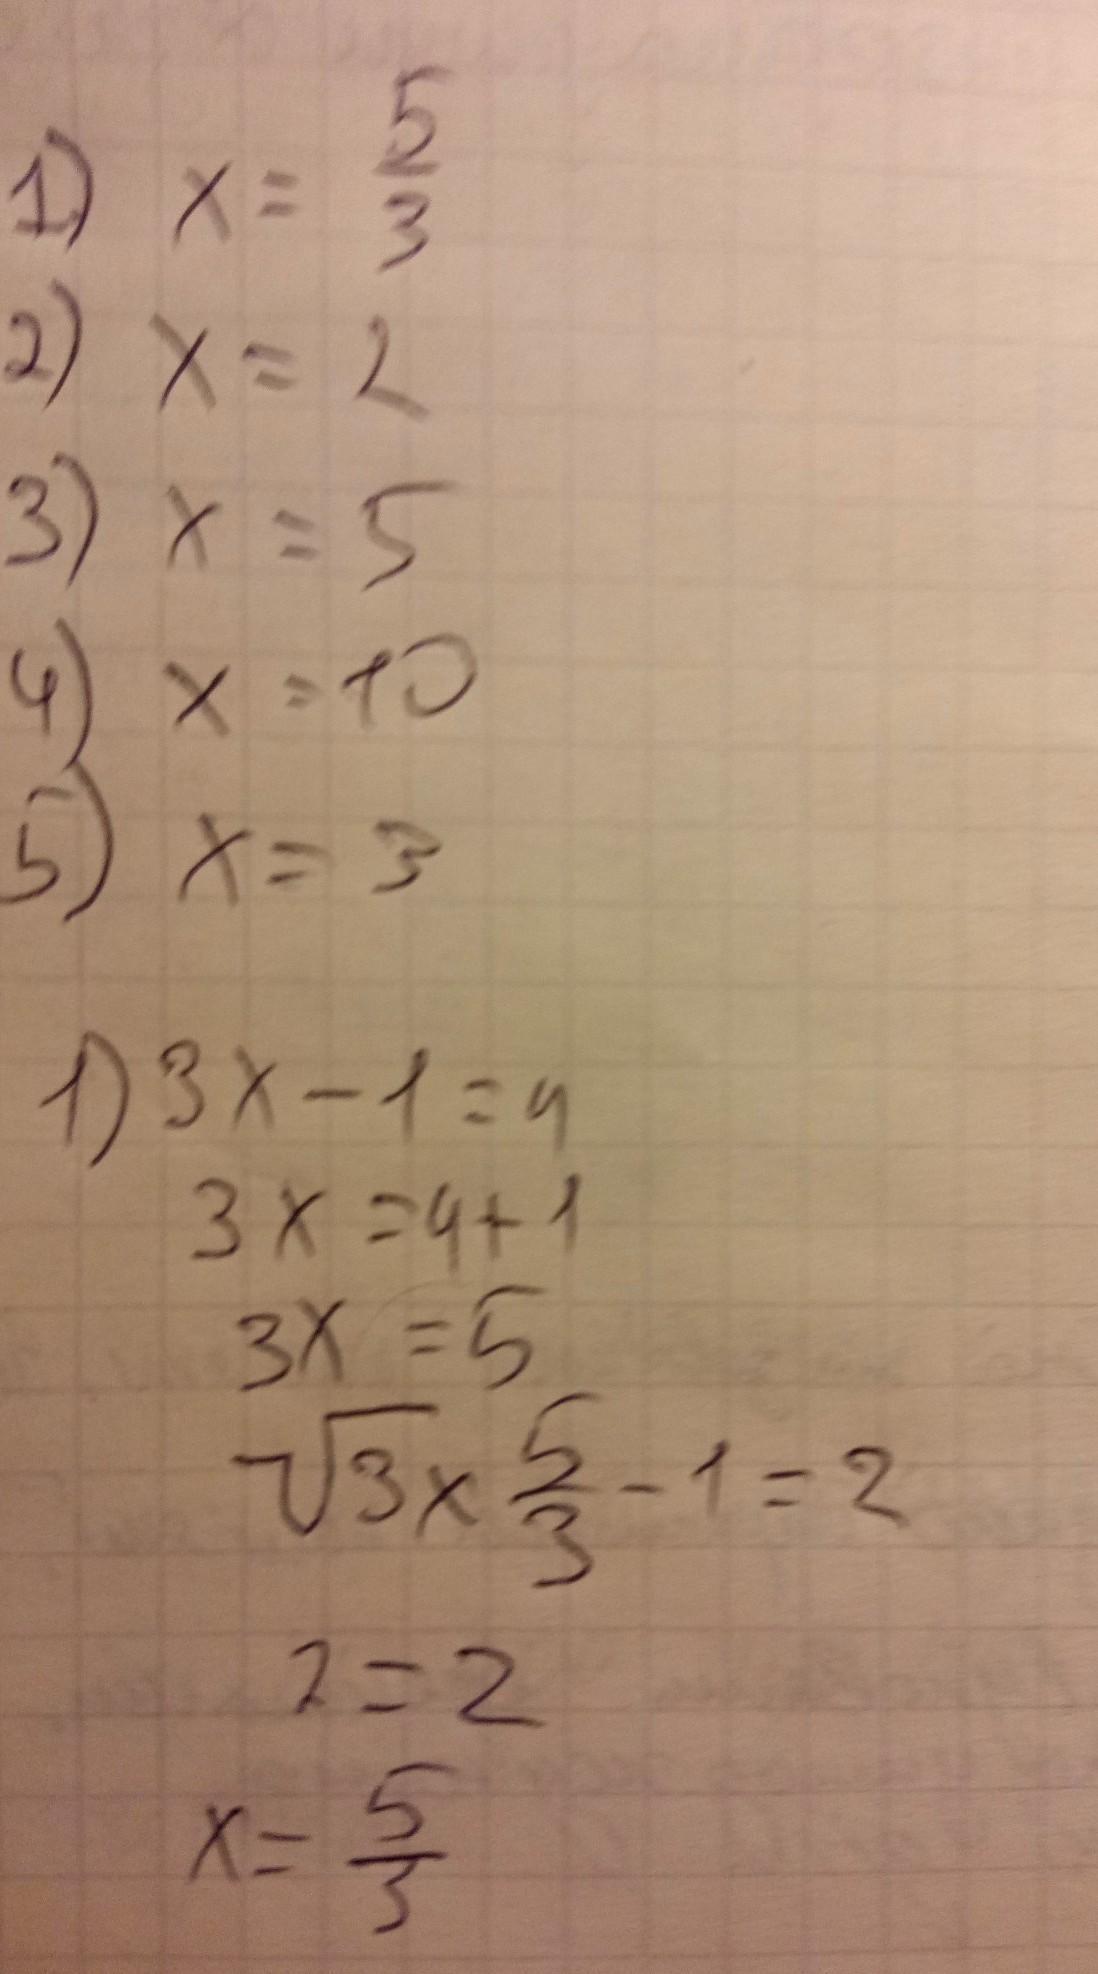 1) x = 5/3
2) x = 2
3) x = 5
4) x = 10
5) x = 3
1) 3x - 1 = 4
3x = 4 + 1
3x = 5
√3 x 5/3 - 1 = 2
2 = 2
x = 5/3